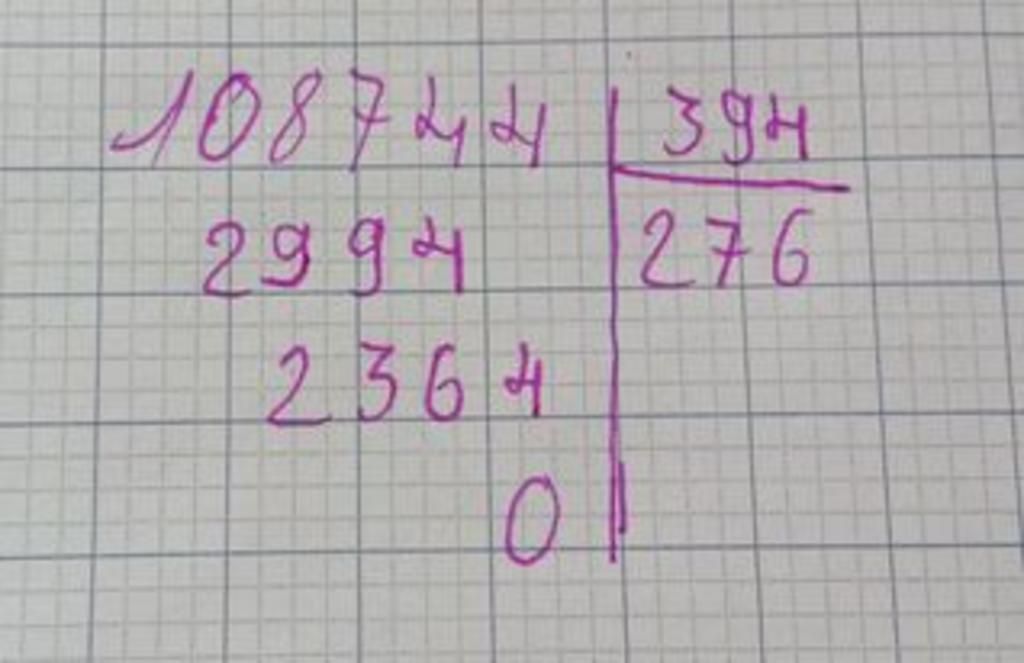 108744 394
2994 276
2364
0